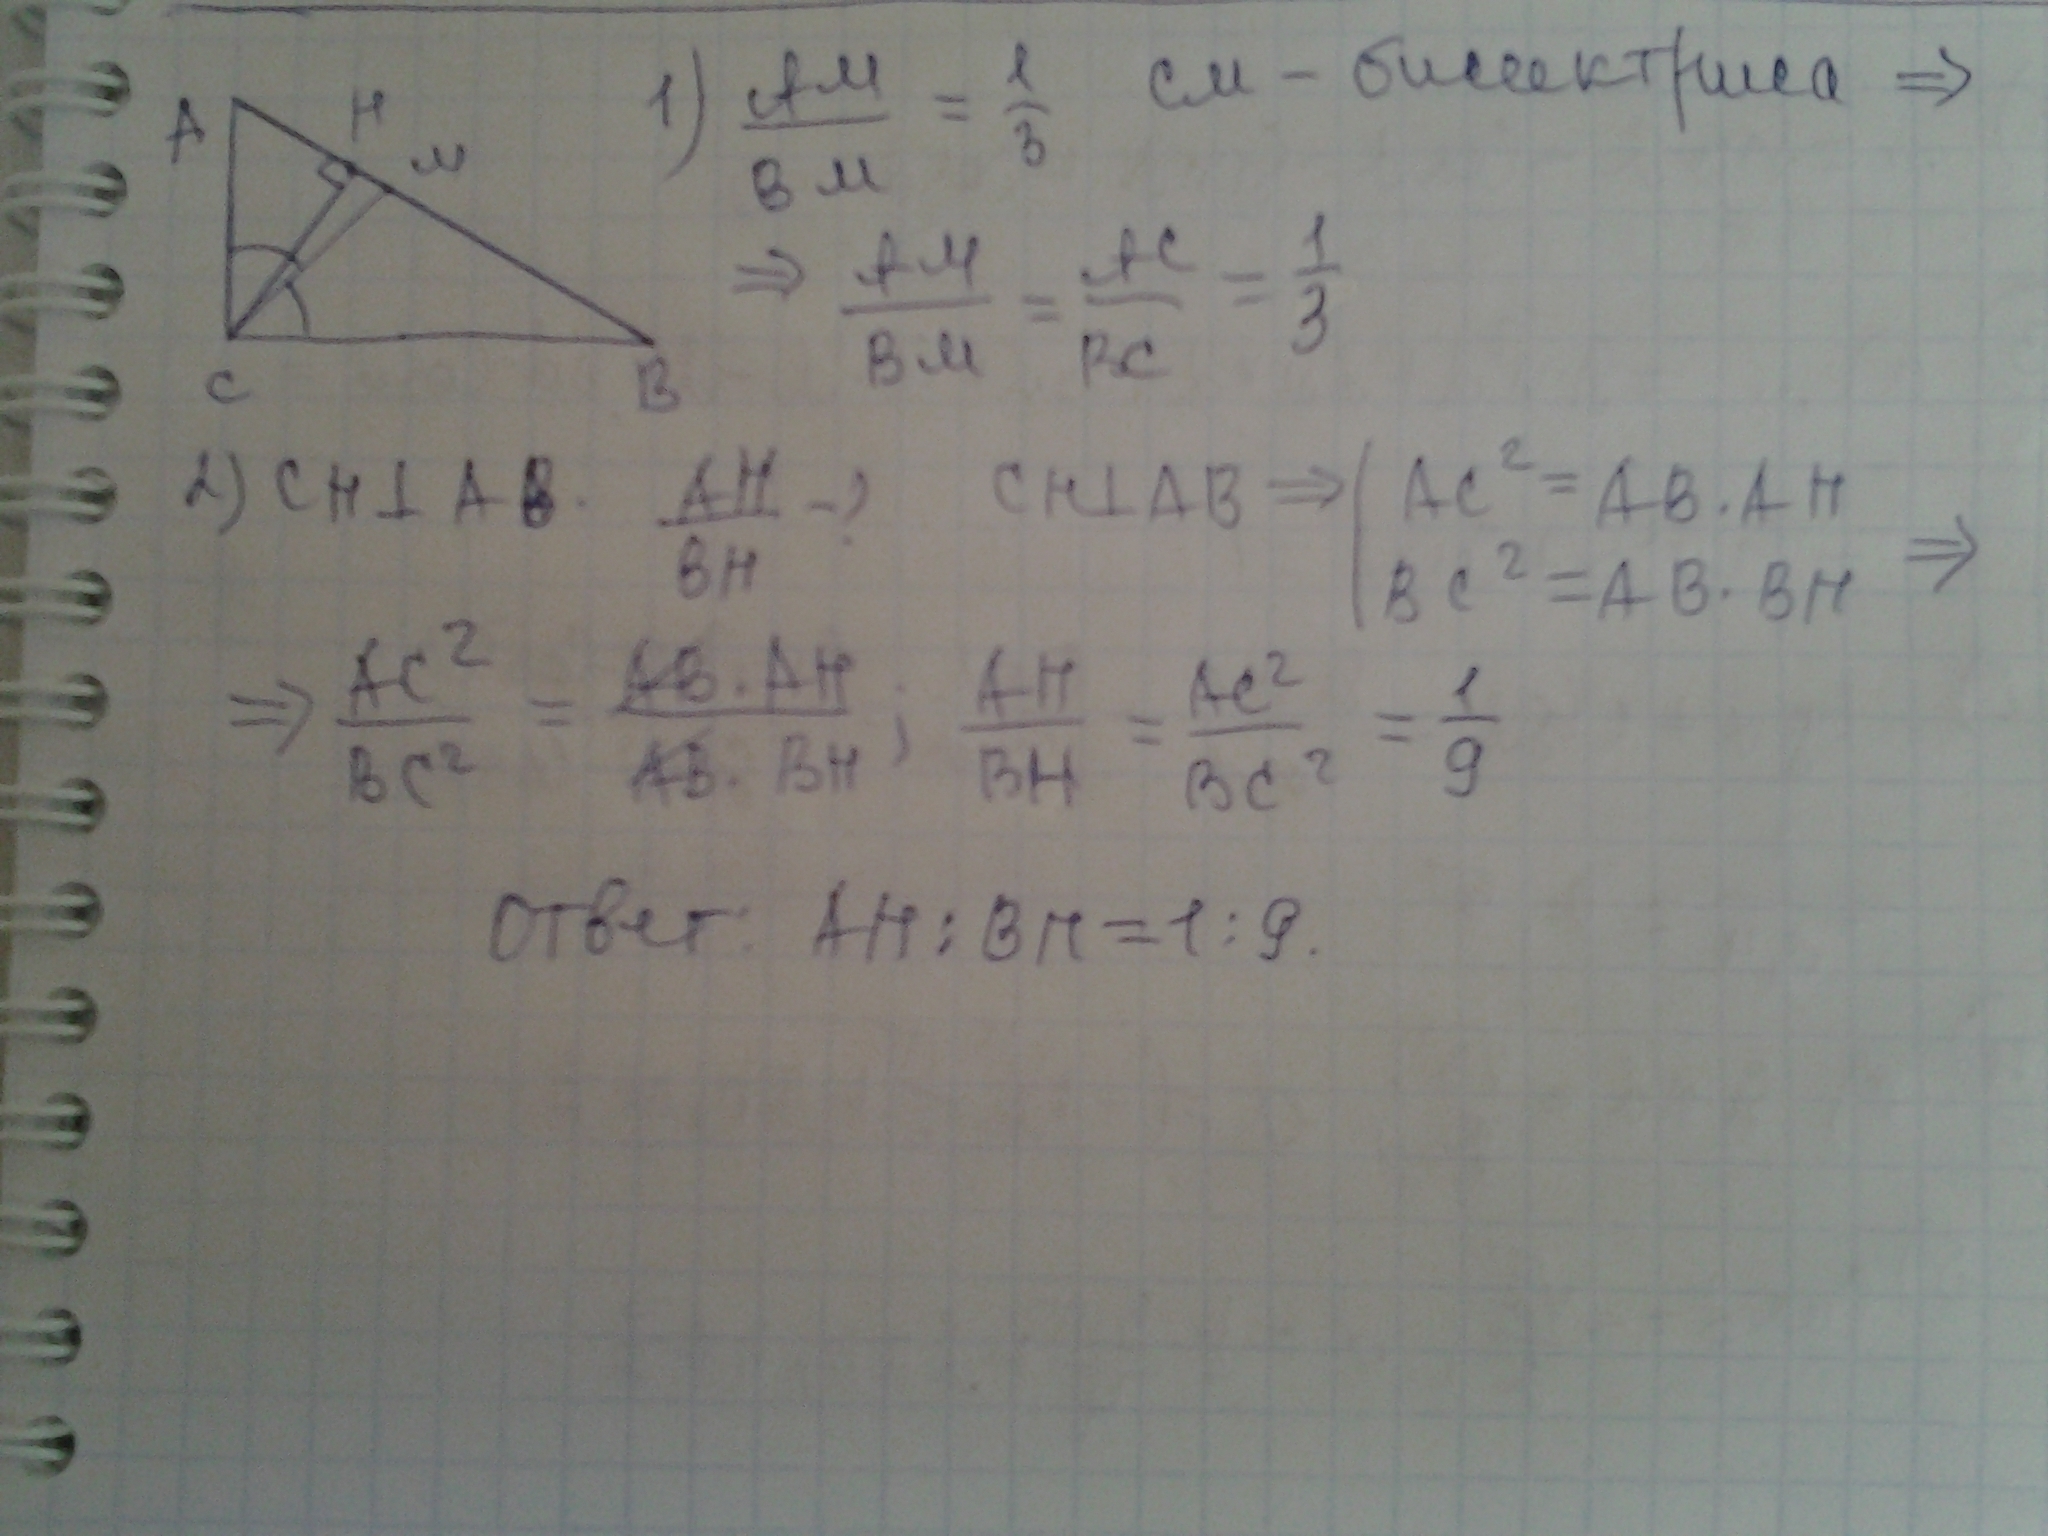 A H M C B
1) AM/BM = 1/3 CM - биссектриса ⇒
⇒ AM/BM = AC/BC = 1/3
2) CH⊥AB. AH/BH -? CH⊥AB ⇒ { AC² = AB·AH
BC² = AB·BH ⇒
⇒ AC²/BC² = AB·AH/AB·BH ; AH/BH = AC²/BC² = 1/9
Ответ: AH:BH=1:9.